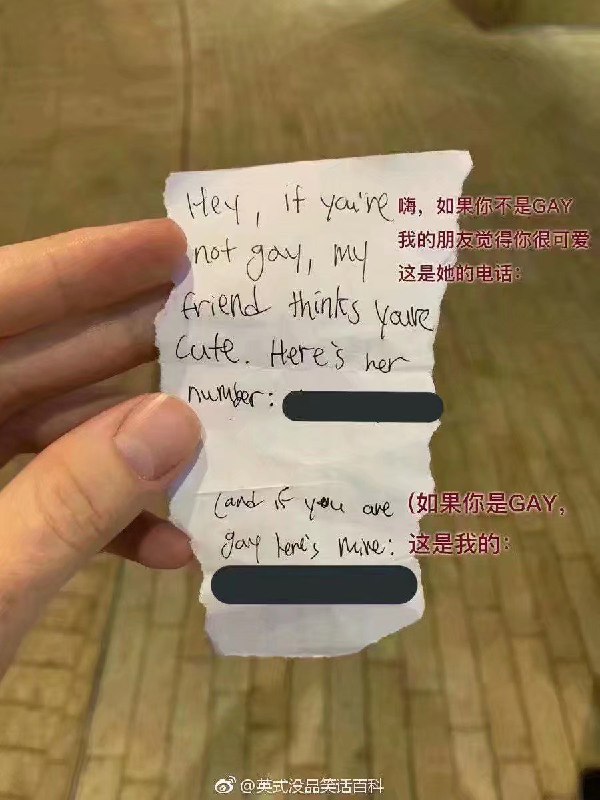 Hey, if you're
not gay, my
friend thinks youre
cute. Here's her
number:
(and if you are
gay here's mine:
嗨，如果你不是GAY
我的朋友觉得你很可爱
这是她的电话：
(如果你是GAY，
这是我的：
@英式没品笑话百科